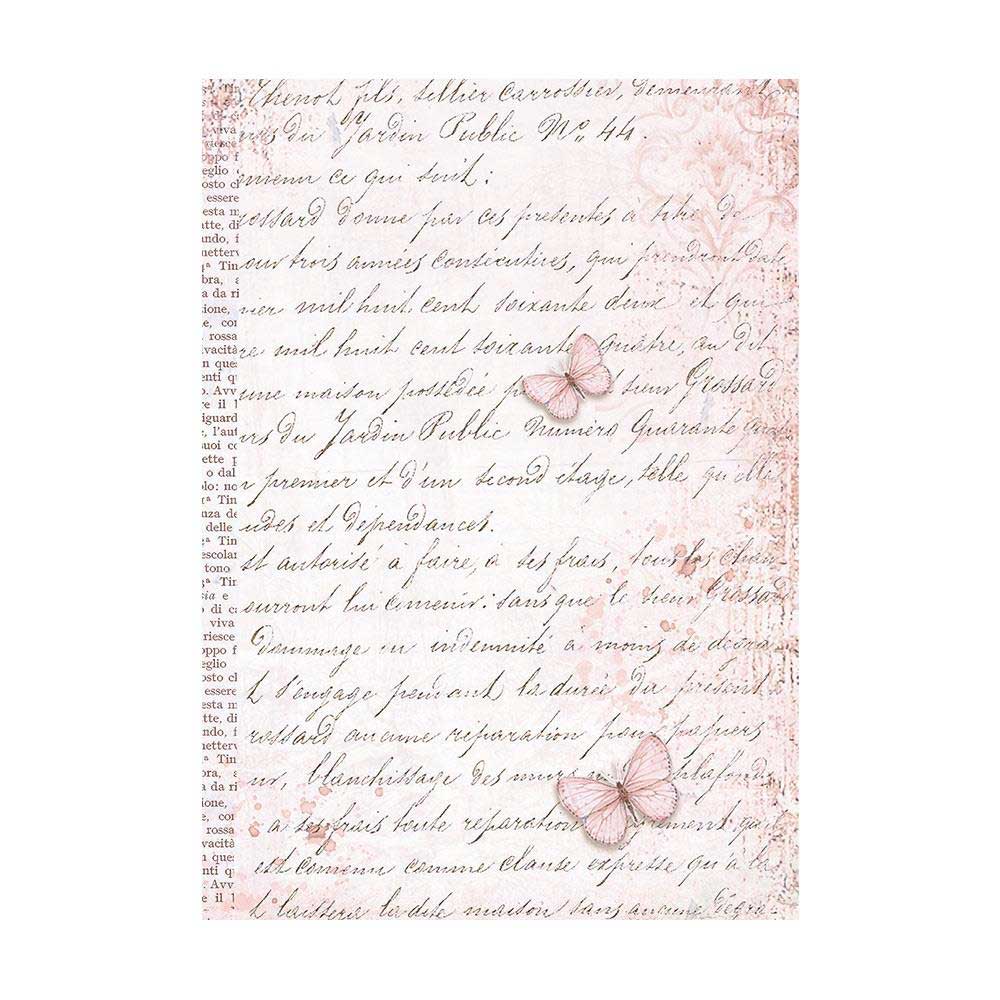 Thenot fils, sellier carrossier, demeurant
urs du Jardin Public No 44.
onvenu ce qui suit:
ossard donne par ces presentes à titre de
our trois années consécutives, qui prendront date
vier mil huit cent soixante deux et qui
re mil huit cent soixante quatre, au dit
une maison possédée sieur Grossard
urs du Jardin Public numéro quarante
premier et d'un second étage, telle qu'elle
udes et dépendances.
st autorisé à faire, à ses frais, tous les chan-
ourront lui convenir: sans que le sieur Grossard
dommage ou indemnité à moins de dégra
t s'engage pendant la durée du présent
rossard aucune réparation pour papiers
ur, blanchissage des murs plafonds
a ses frais toute réparation
est convenu comme clause expresse qu'à la
t laissera la dite maison sans aucune dégra-
viva
oppo f
eglio
osto cl
essere
esta m
tte, di
ndo, f
netterv
ª Tin
bra, a
a da ri
ione,
e, cor
rossa
vacità
n ques
enti q
. Avv
e il l
iguard
, l'aut
suoi co
ette p
o dal
lo: no
ª Tin
nza de
delle
ª Tin
escolar
tono
ª Tin
sia e
o di ca
viva
riesce
oppo f
eglio
osto cl
essere
esta m
tte, di
ndo, f
netterv
ª Tin
bra, a
a da ri
ione,
e, cor
rossa
vacità
n ques
nti q
. Avv
e il l